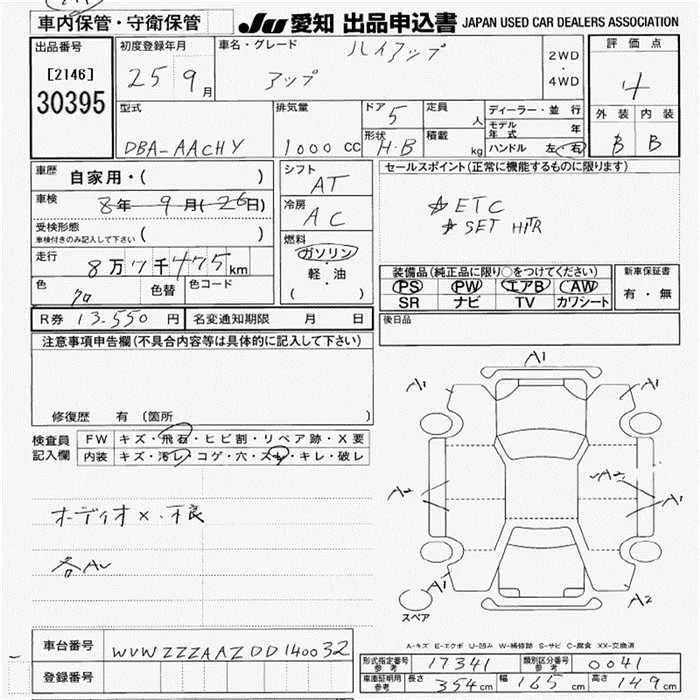 車内保管・守衛保管
JU 愛知 出品申込書 JAPAN USED CAR DEALERS ASSOCIATION
出品番号
[2146]
30395
初度登録年月
25 9月
車名・グレード
ハイアップ
アップ
2WD
・
4WD
評価点
4
外装 内装
B B
型式
DBA-AACHY
排気量
1000 CC
ドア 5
形状 H・B
定員 人
積載 kg
ディーラー・並行
モデル年式 年
ハンドル 左・右
車歴 自家用・( )
車検 8年 9月(26日)
受検形態
車検付きのみ記入して下さい ( )
走行
8万7千475km
色 クロ
色替
色コード
シフト
AT
冷房
AC
燃料
ガソリン
・
軽・油
( )
セールスポイント(正常に機能するものに限ります)
☆ETC
☆SET HTR
装備品(純正品に限り○をつけてください)
PS PW エアB AW
SR ナビ TV カワシート
新車保証書
有・無
R券 13-550 円
名変通知期限 月 日
後日品
注意事項申告欄(不具合内容等は具体的に記入して下さい)
修復歴 有 (箇所 )
検査員記入欄
FW キズ・飛石・ヒビ割・リペア跡・X要
内装 キズ・汚レ・コゲ・穴・スレ・キレ・破レ
オーディオ×.不良
各AU
A1
A1
A1
A2
A2
A1
A1
A2
スペア
A-キズ E-エクボ U-凹み W-補修跡 S-サビ C-腐食 XX-交換済
車台番号 WVWZZZAAZDD140032
登録番号
形式指定番号 参考 17341
類別区分番号 参考 0041
車庫証明用 参考 長さ 354cm 幅 165cm 高さ 149cm